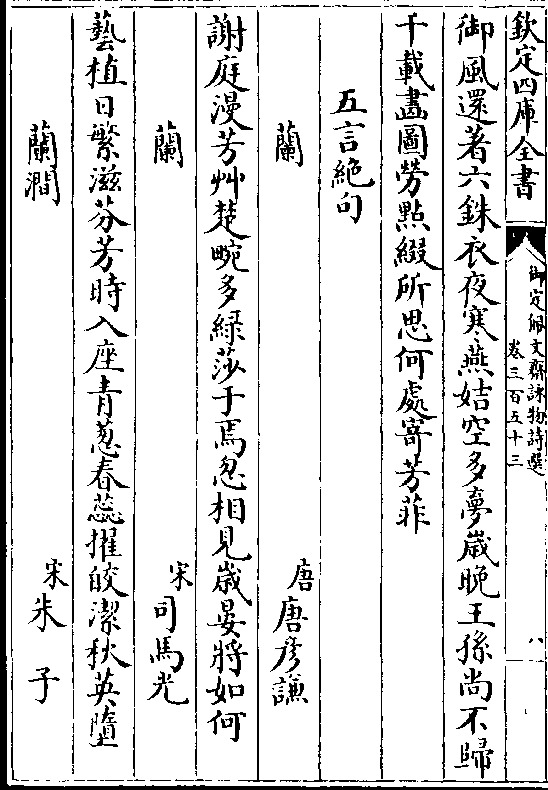 欽定四庫全書
御定佩文齋詠物詩選
卷三百五十三
八
御風還著六銖衣夜寒燕姞空多夢歳晚王孫尚不歸
千載畫圖勞點綴所思何處寄芳菲
五言絶句
蘭
唐唐彦謙
謝庭漫芳艸楚畹多緑莎于焉忽相見歳晏將如何
蘭
宋司馬光
藝植日繁滋芬芳時入座青葱春蕊擢皎潔秋英墮
蘭澗
宋朱子